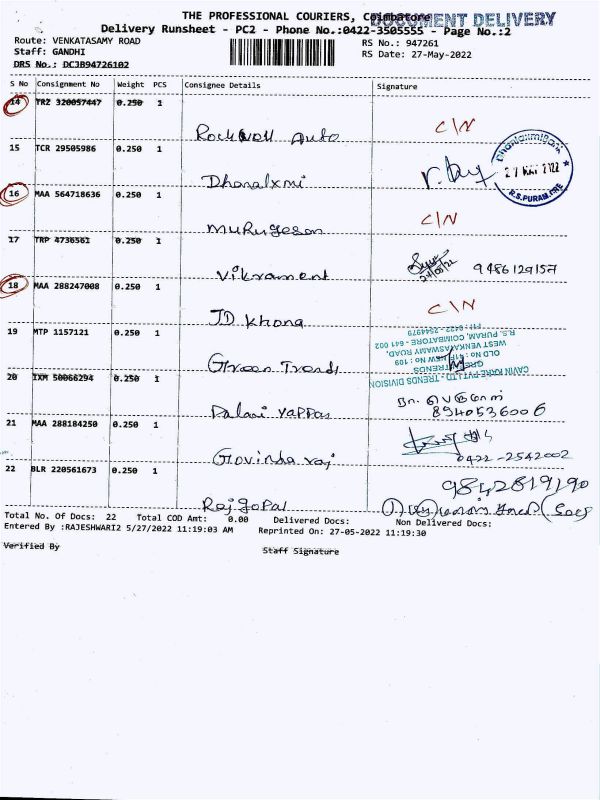 THE PROFESSIONAL COURIERS, Coimbatore
DOCUMENT DELIVERY
Delivery Runsheet - PC2 - Phone No.:0422-3505555 - Page No.:2
Route: VENKATASAMY ROAD
RS No.: 947261
Staff: GANDHI
RS Date: 27-May-2022
DRS No.: DC3B94726102
S No Consignment No Weight PCS Consignee Details Signature
14 TRZ 320057447 0.250 1
Rockwell Auto C/N
15 TCR 29505986 0.250 1
Dhanalxmi
Dhanlaxmi Bank
27 MAY 2022
R.S.PURAM,CBE
16 MAA 564718636 0.250 1
Murugesan C/N
17 TRP 4736561 0.250 1
Vikrament 9486129157
18 MAA 288247008 0.250 1
JD Khona C/N
19 MTP 1157121 0.250 1
Green Trends
CAVIN KARE PVT LTD - TRENDS DIVISION
GREEN TRENDS
WEST VENKATASWAMY ROAD,
R.S. PURAM, COIMBATORE - 641 002
PH : 0422 - 2544979
20 IXM 50066294 0.250 1
Palani yappas 8940536006
21 MAA 288184250 0.250 1
Govinda raj 0422-2542002
22 BLR 220561673 0.250 1
Rajgopal 9842819190
Total No. Of Docs: 22 Total COD Amt: 0.00 Delivered Docs: Non Delivered Docs:
Entered By :RAJESHWARI2 5/27/2022 11:19:03 AM Reprinted On: 27-05-2022 11:19:30
Verified By Staff Signature